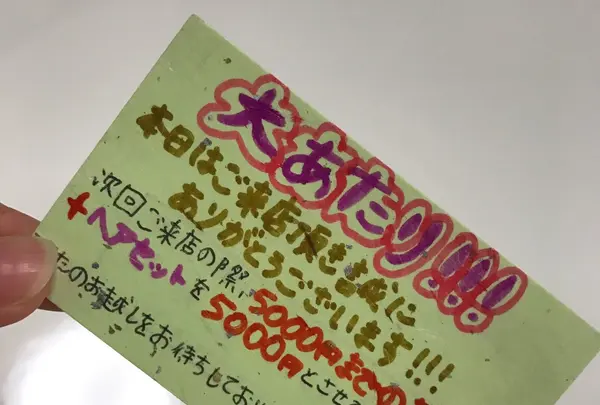 大あたり!!!
本日はご来店頂き誠に
ありがとうございます!!!
次回ご来店の際、5000円までの
+ヘアセットを5000円とさせ
たのお越しをお待ちしてお